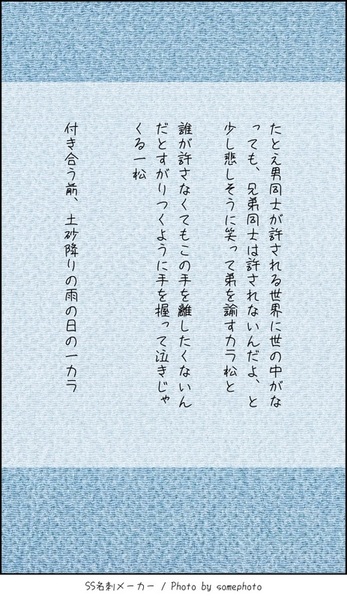 たとえ男同士が許される世界に世の中がな
っても、兄弟同士は許されないんだよ、と
少し悲しそうに笑って弟を諭すカラ松と
誰が許さなくてもこの手を離したくないん
だとすがりつくように手を握って泣きじゃ
くる一松
付き合う前、土砂降りの雨の日の一カラ
SS名刺メーカー / Photo by somephoto